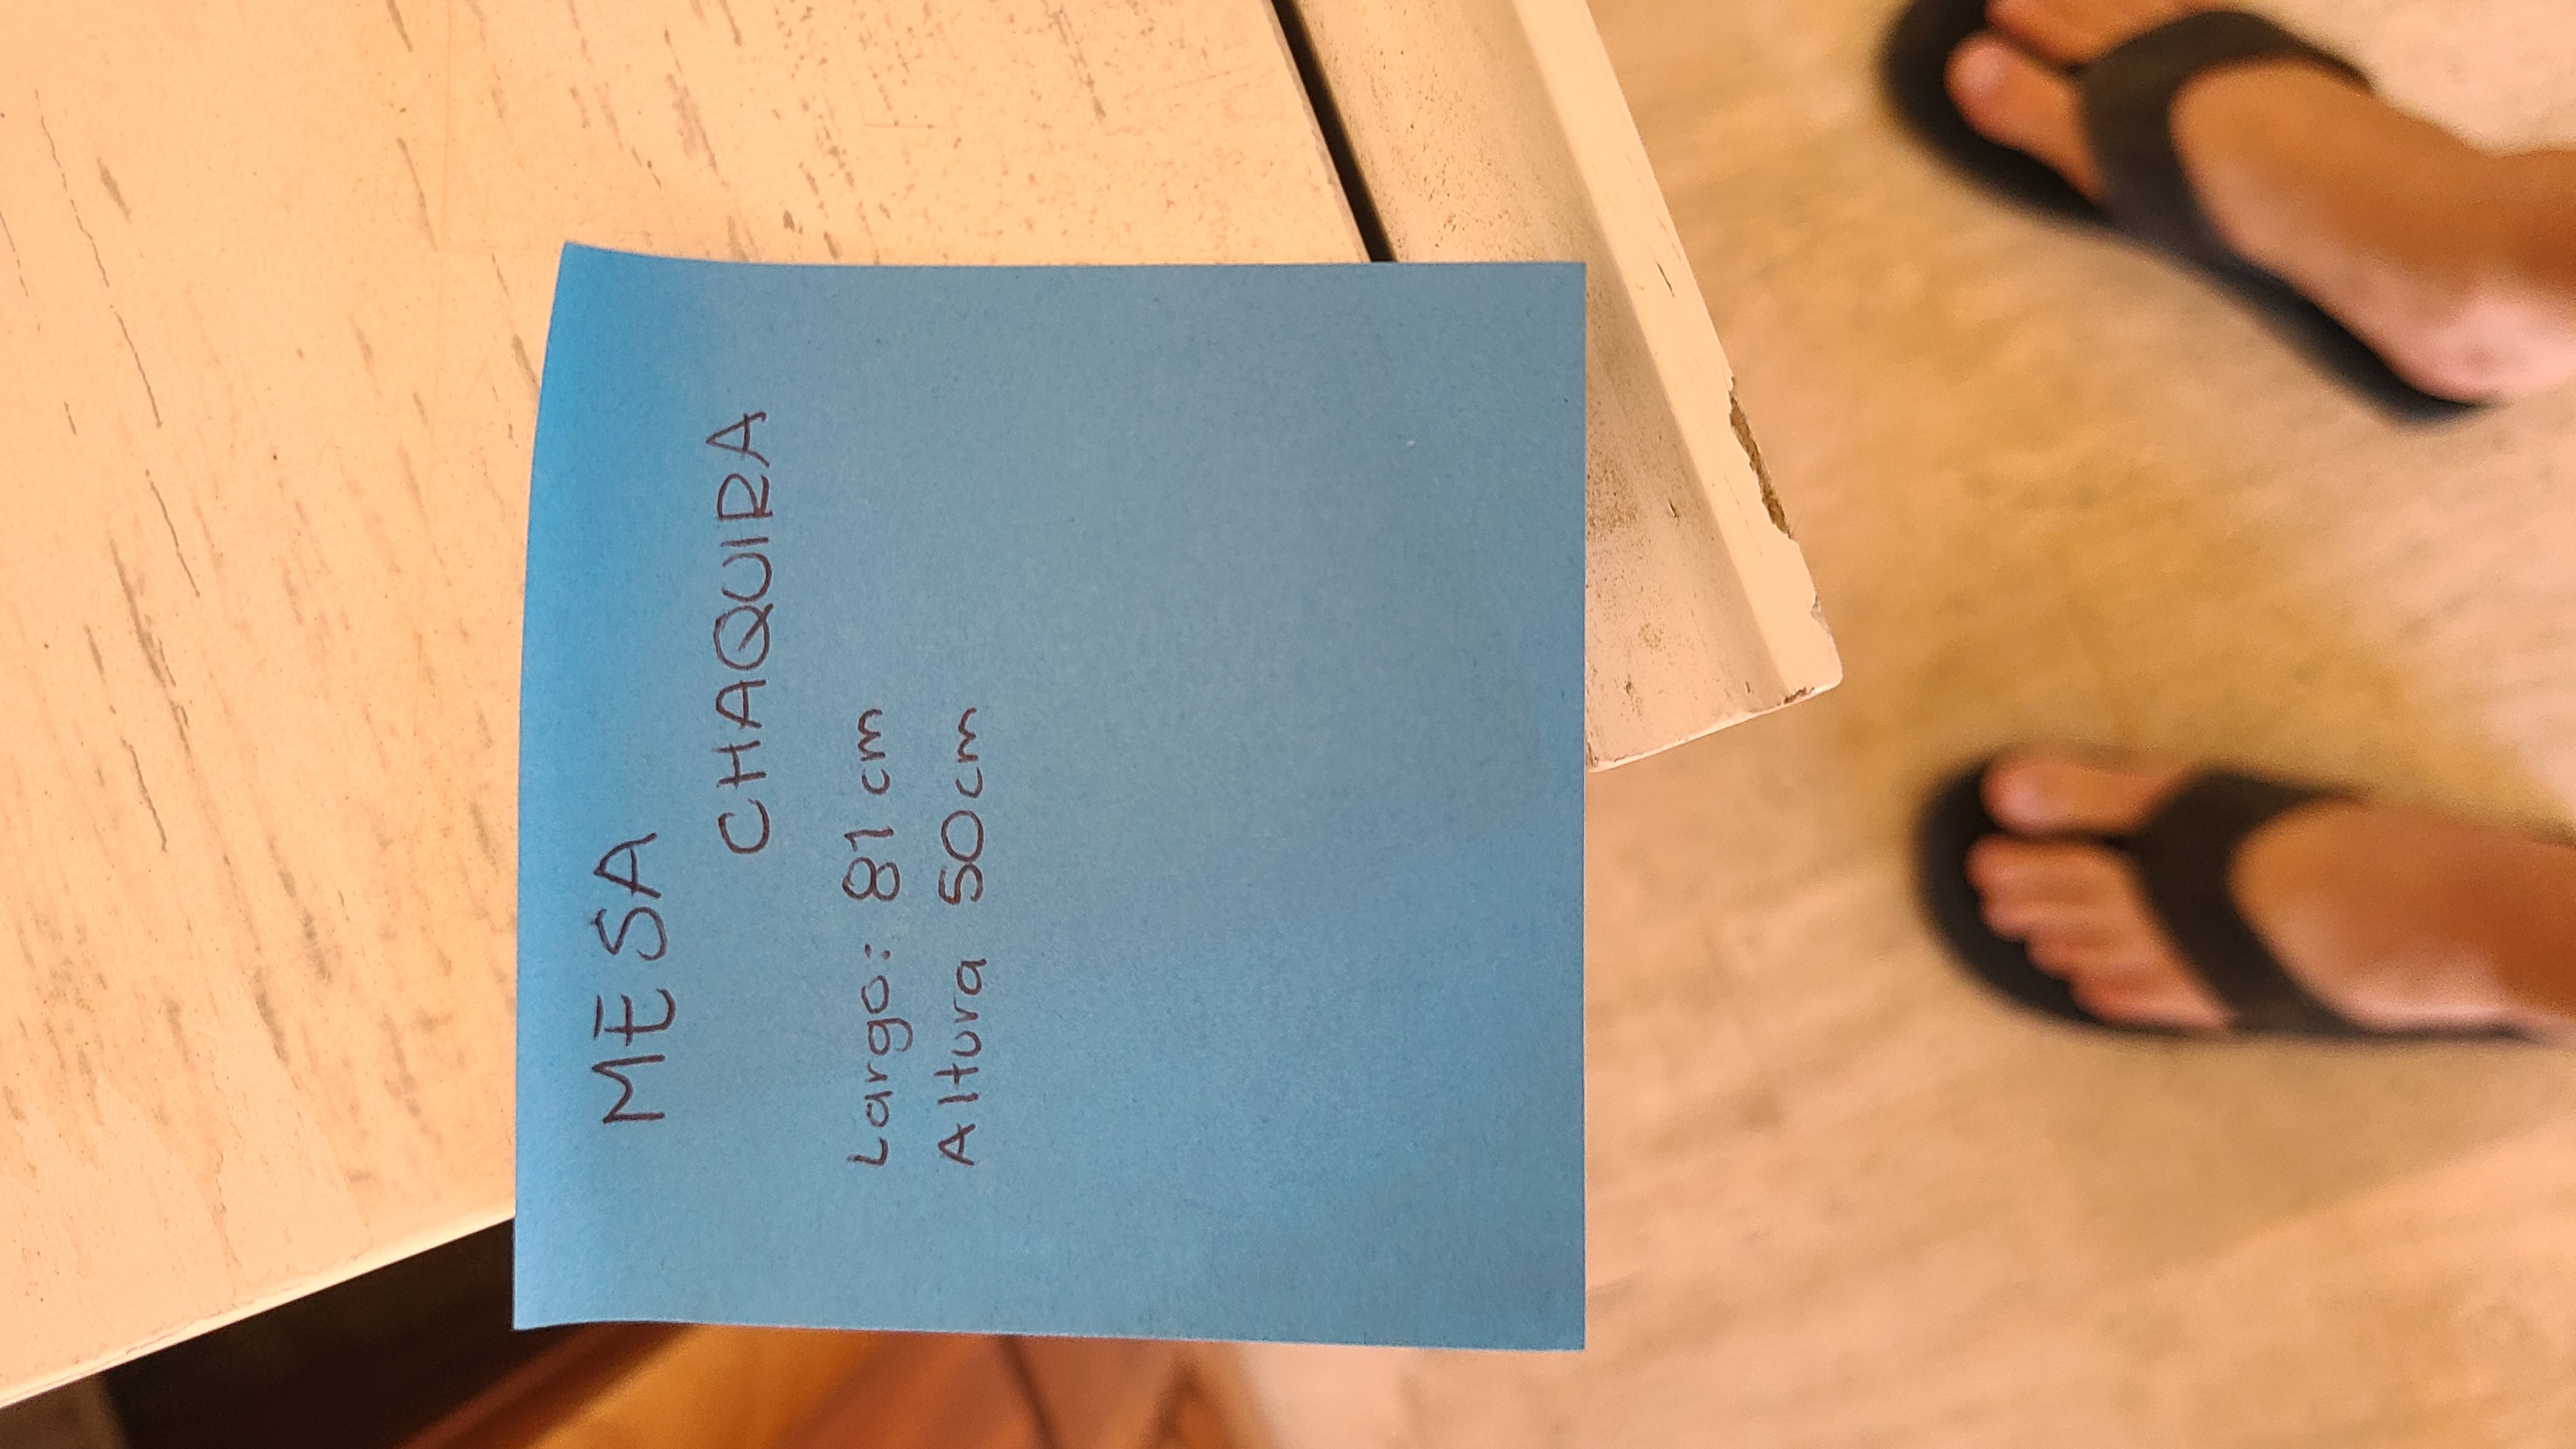 MESA
CHAQUIRA
Largo: 81 cm
Altura 50cm